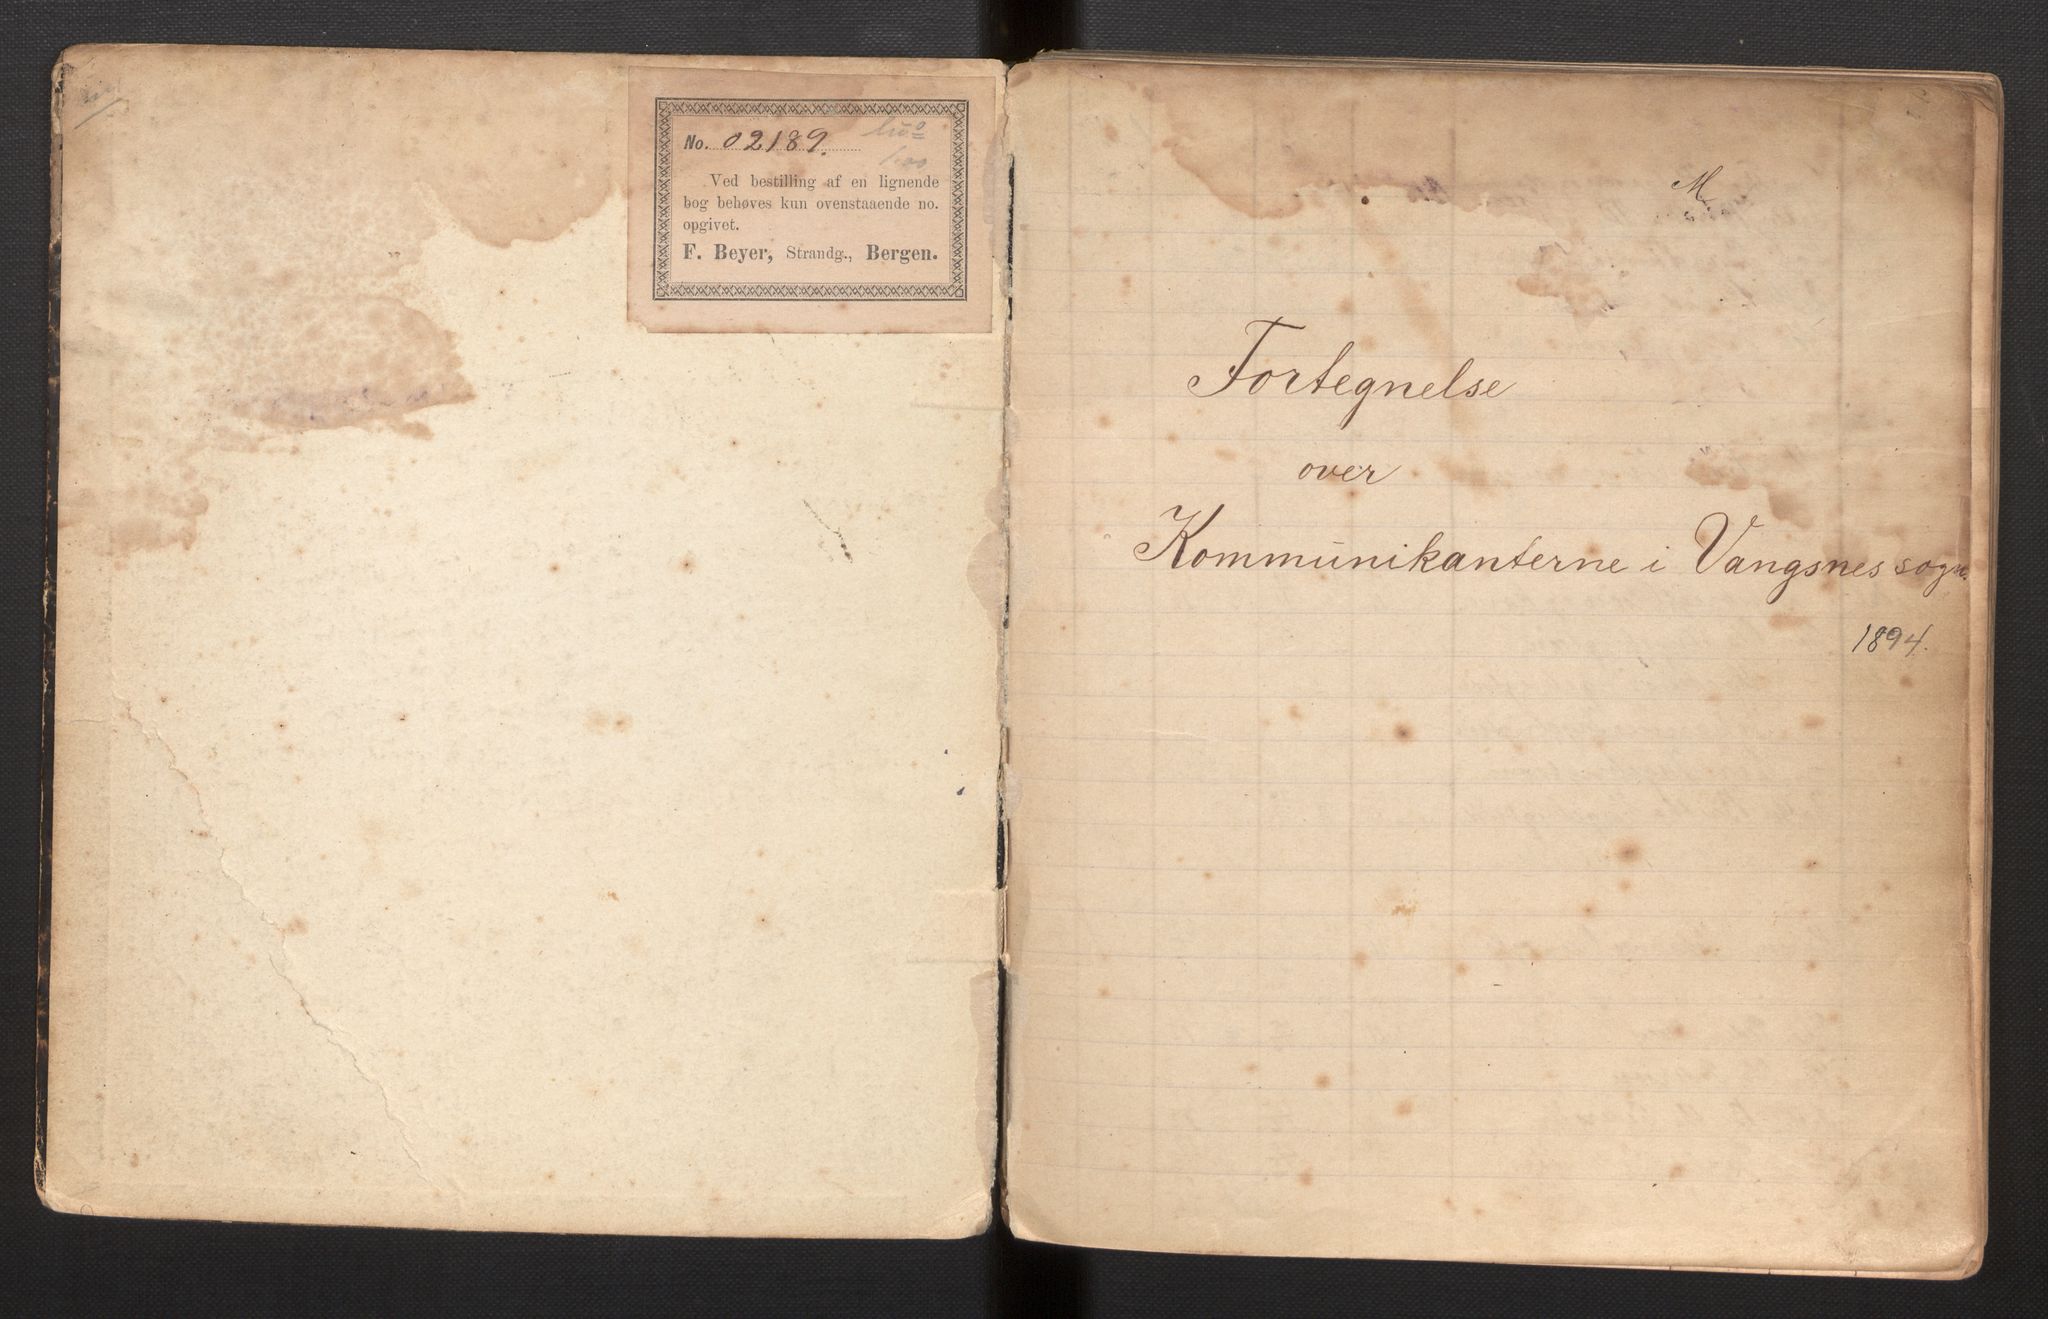 No. 02189.
Ved bestilling af en lignende
bog behøves kun ovenstaaende no.
opgivet.
F. Beyer, Strandg., Bergen.
M
Fortegnelse
over
Kommunikanterne i Vangsnes sogn.
1894.